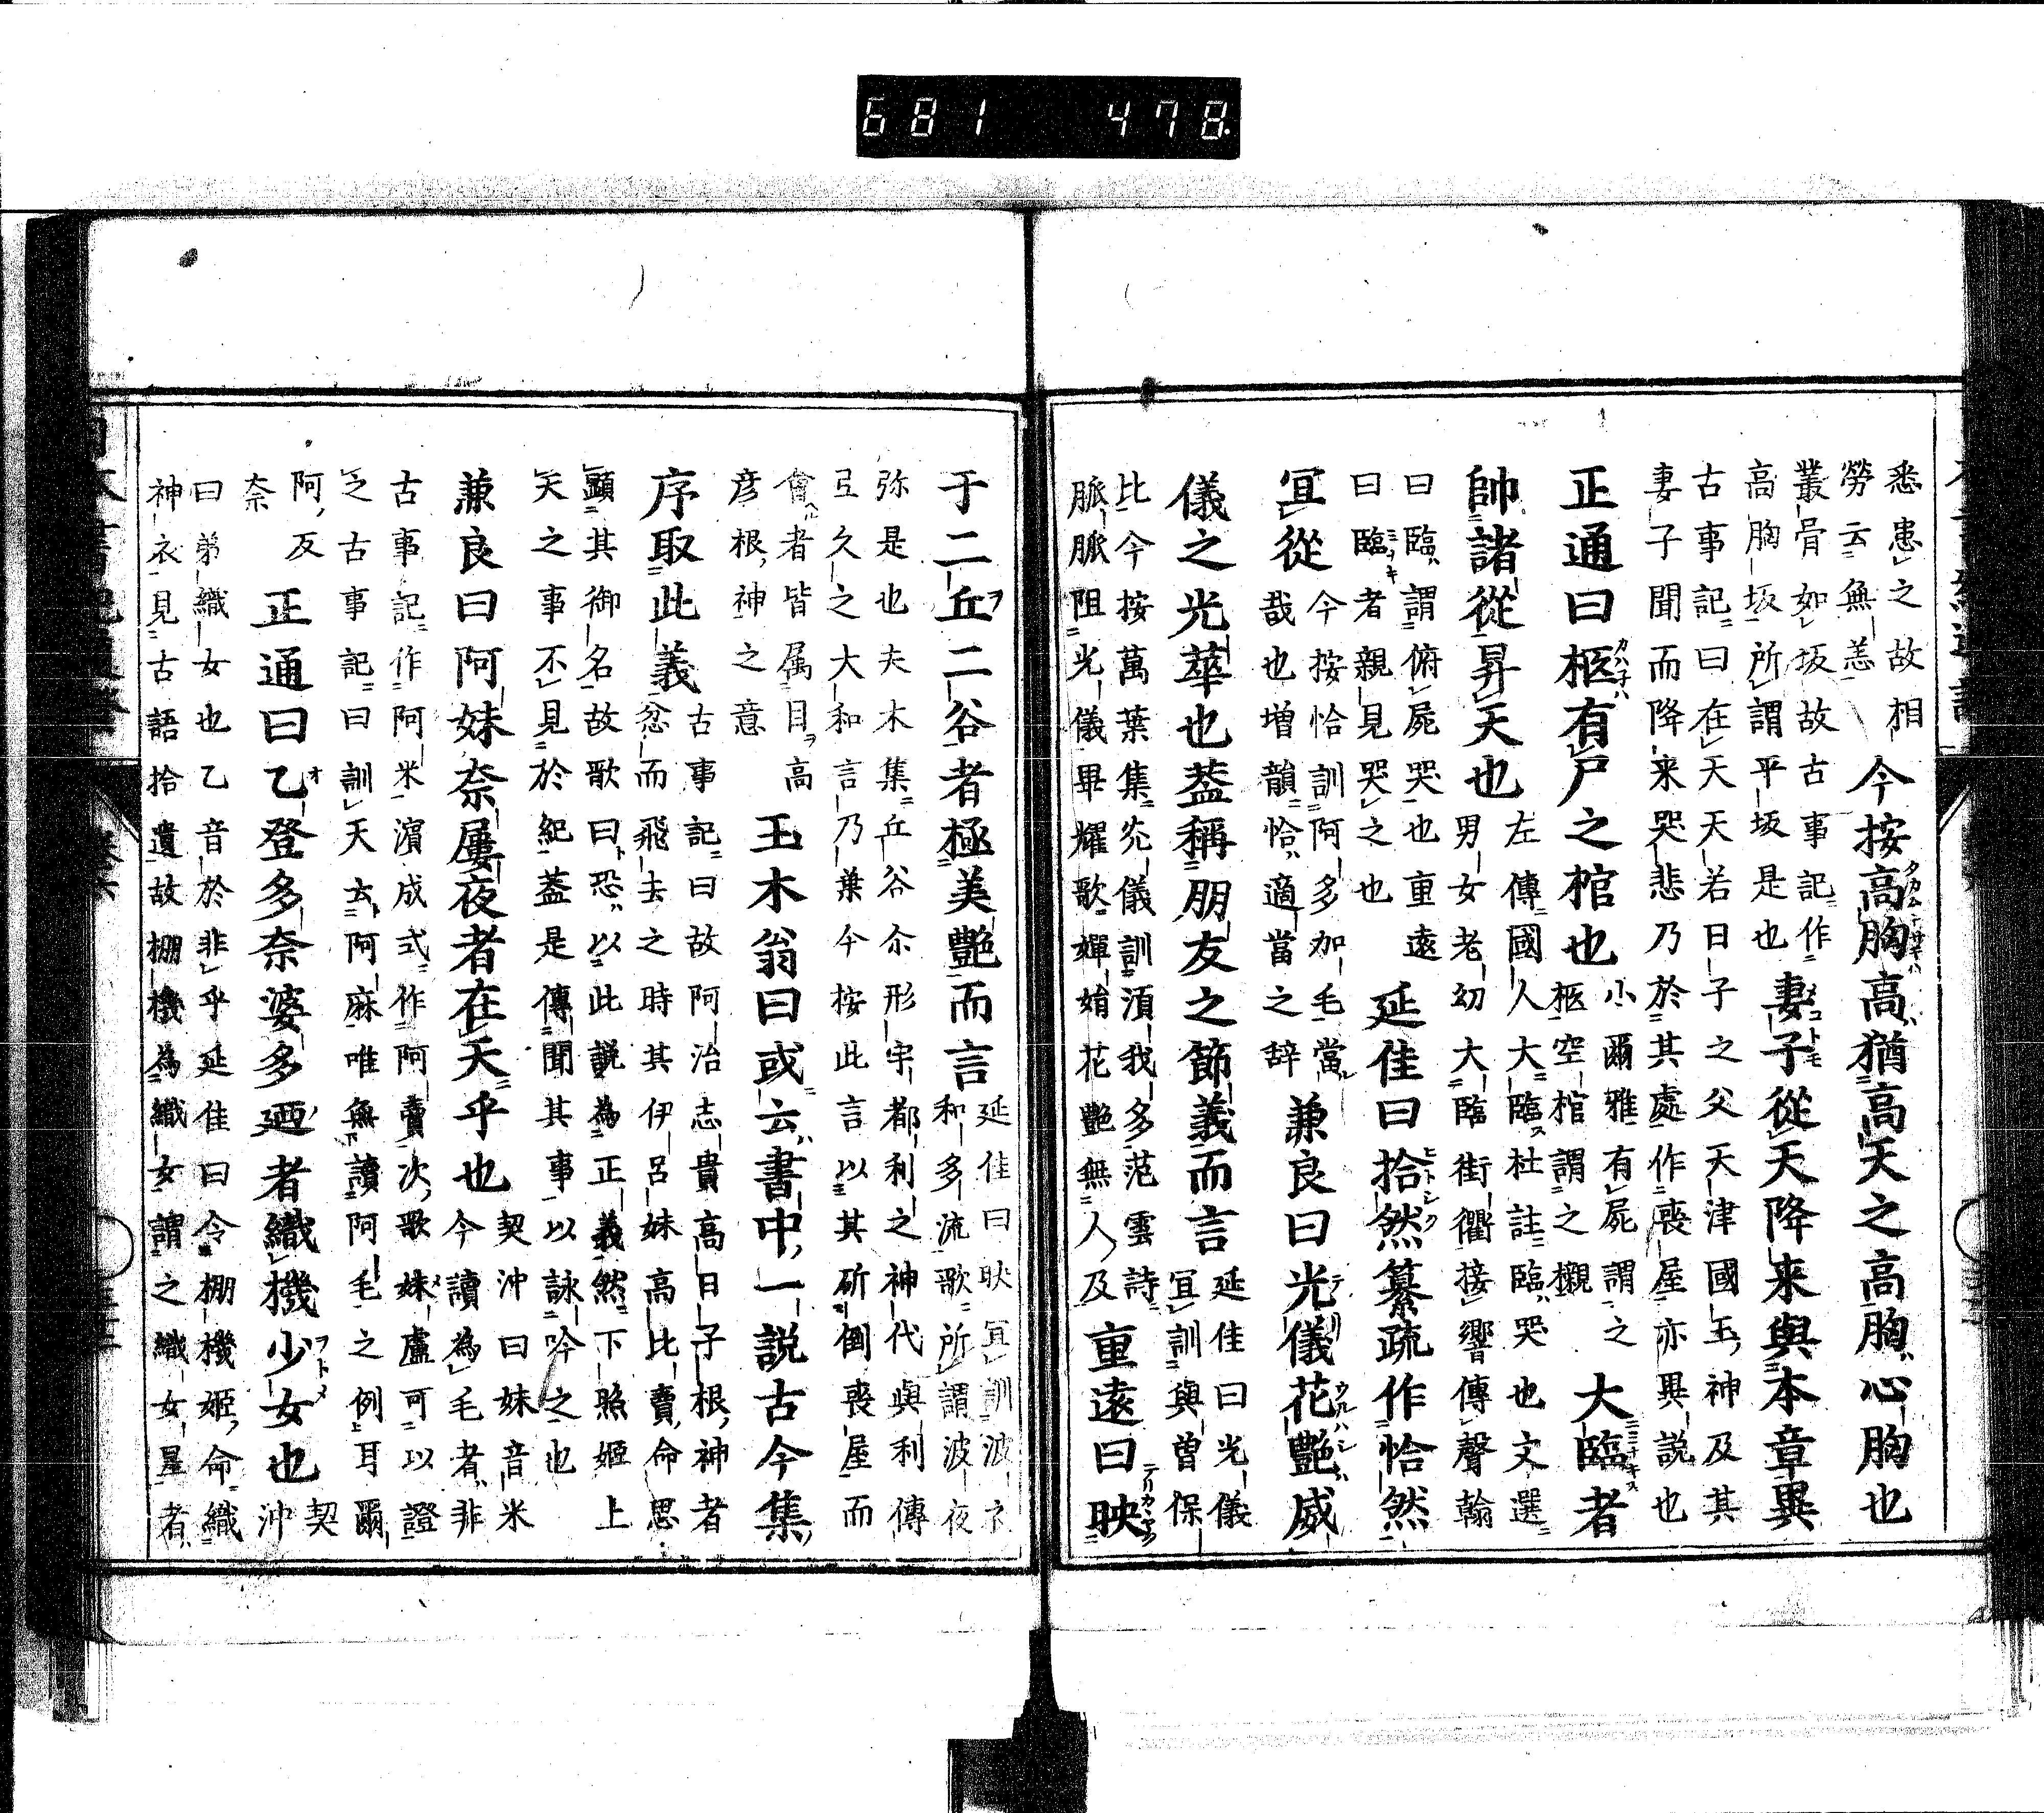 681 478
悉患之故相
勞云無恙
今按高胸高猶高天之高胸心胸也
叢骨如坂故古事記作
高胸坂所謂平坂是也
妻子從天降来與本章異
古事記曰在天天若日子之父天津國玉神及其
妻子聞而降来哭悲乃於其處作喪屋亦異説也
正通曰柩有尸之棺也
小爾雅有屍謂之
柩空棺謂之櫬
大臨者
帥諸從昇天也
左傳國人大臨杜註臨哭也文選
男女老幼大臨街衢接響傳聲翰
曰臨謂俯屍哭也重遠
曰臨者親見哭之也
延佳曰拾然纂疏作恰然
冝從
今按恰訓阿多加毛當
哉也増韻恰適當之辞
兼良曰光儀花艶威
儀之光華也葢稱朋友之節義而言
延佳曰光儀
冝訓與曽保
比今按萬葉集光儀訓湏我多范雲詩
脈脈阻光儀畢耀歌嬋娟花艶無人及
重遠曰映
于二丘二谷者極美艶而言
延佳曰映冝訓波ネ
和多流歌所謂波夜
弥是也夫木集丘谷尒形宇都利之神代與利傳
弖久之大和言乃兼今按此言以其斫倒喪屋而
會者皆属目高
彦根神之意
玉木翁曰或云書中一説古今集
序取此義
古事記曰故阿治志貴高日子根神者
忿而飛去之時其伊呂妹高比賣命思
顯其御名故歌曰恐以此説為正義然下照姬上
天之事不見於紀葢是傳聞其事以詠吟之也
兼良曰阿妹奈屢夜者在天乎也
契沖曰妹音米
今讀為毛者非
古事記作阿米濵成式作阿賣次歌妹盧可以證
之古事記曰訓天云阿麻唯無讀阿毛之例耳爾
阿反
奈
正通曰乙登多奈婆多廼者織機少女也
契
沖
曰弟織女也乙音於非乎延佳曰令棚機姬命織
神衣見古語拾遺故棚機為織女謂之織女星者